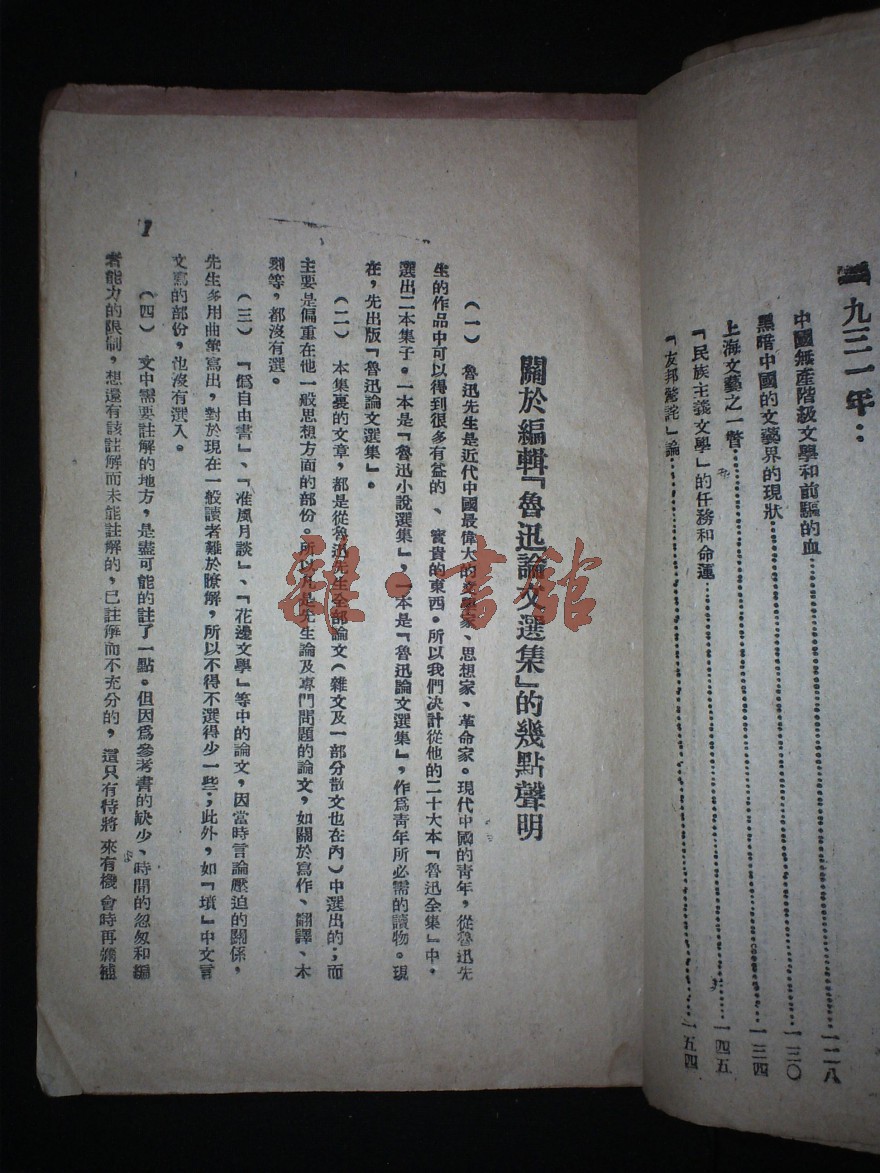 一九三一年：
中國無產階級文學和前驅的血……一二八
黑暗中國的文藝界的現狀……一三〇
上海文藝之一瞥……一三四
『民族主義文學』的任務和命運……一四五
『友邦驚詫』論……一五四
關於編輯『魯迅論文選集』的幾點聲明
（一）　魯迅先生是近代中國最偉大的文學家、思想家、革命家。現代中國的青年，從魯迅先
生的作品中可以得到很多有益的、寳貴的東西。所以我們決計從他的二十大本『魯迅全集』中，
選出二本集子。一本是『魯迅小說選集』，一本是『魯迅論文選集』，作爲青年所必需的讀物。現
在，先出版『魯迅論文選集』。
（二）　本集裏的文章，都是從魯迅先生全部論文（雜文及一部分散文也在內）中選出的；而
主要是偏重在他一般思想方面的部份。所以凡是先生論及專門問題的論文，如關於寫作、翻譯、木
刻等，都沒有選。
（三）　『僞自由書』、『准風月談』、『花邊文學』等中的論文，因當時言論壓迫的關係，
先生多用曲筆寫出，對於現在一般讀者難於瞭解，所以不得不選得少一些；此外，如『墳』中文言
文寫的部份，也沒有選入。
（四）　文中需要註解的地方，是盡可能的註了一點。但因爲參考書的缺少、時間的忽匆和編
者能力的限制，想還有該註解而未能註解的，已註解而不充分的，這只有待將來有機會時再彌補
1
雜·書舘